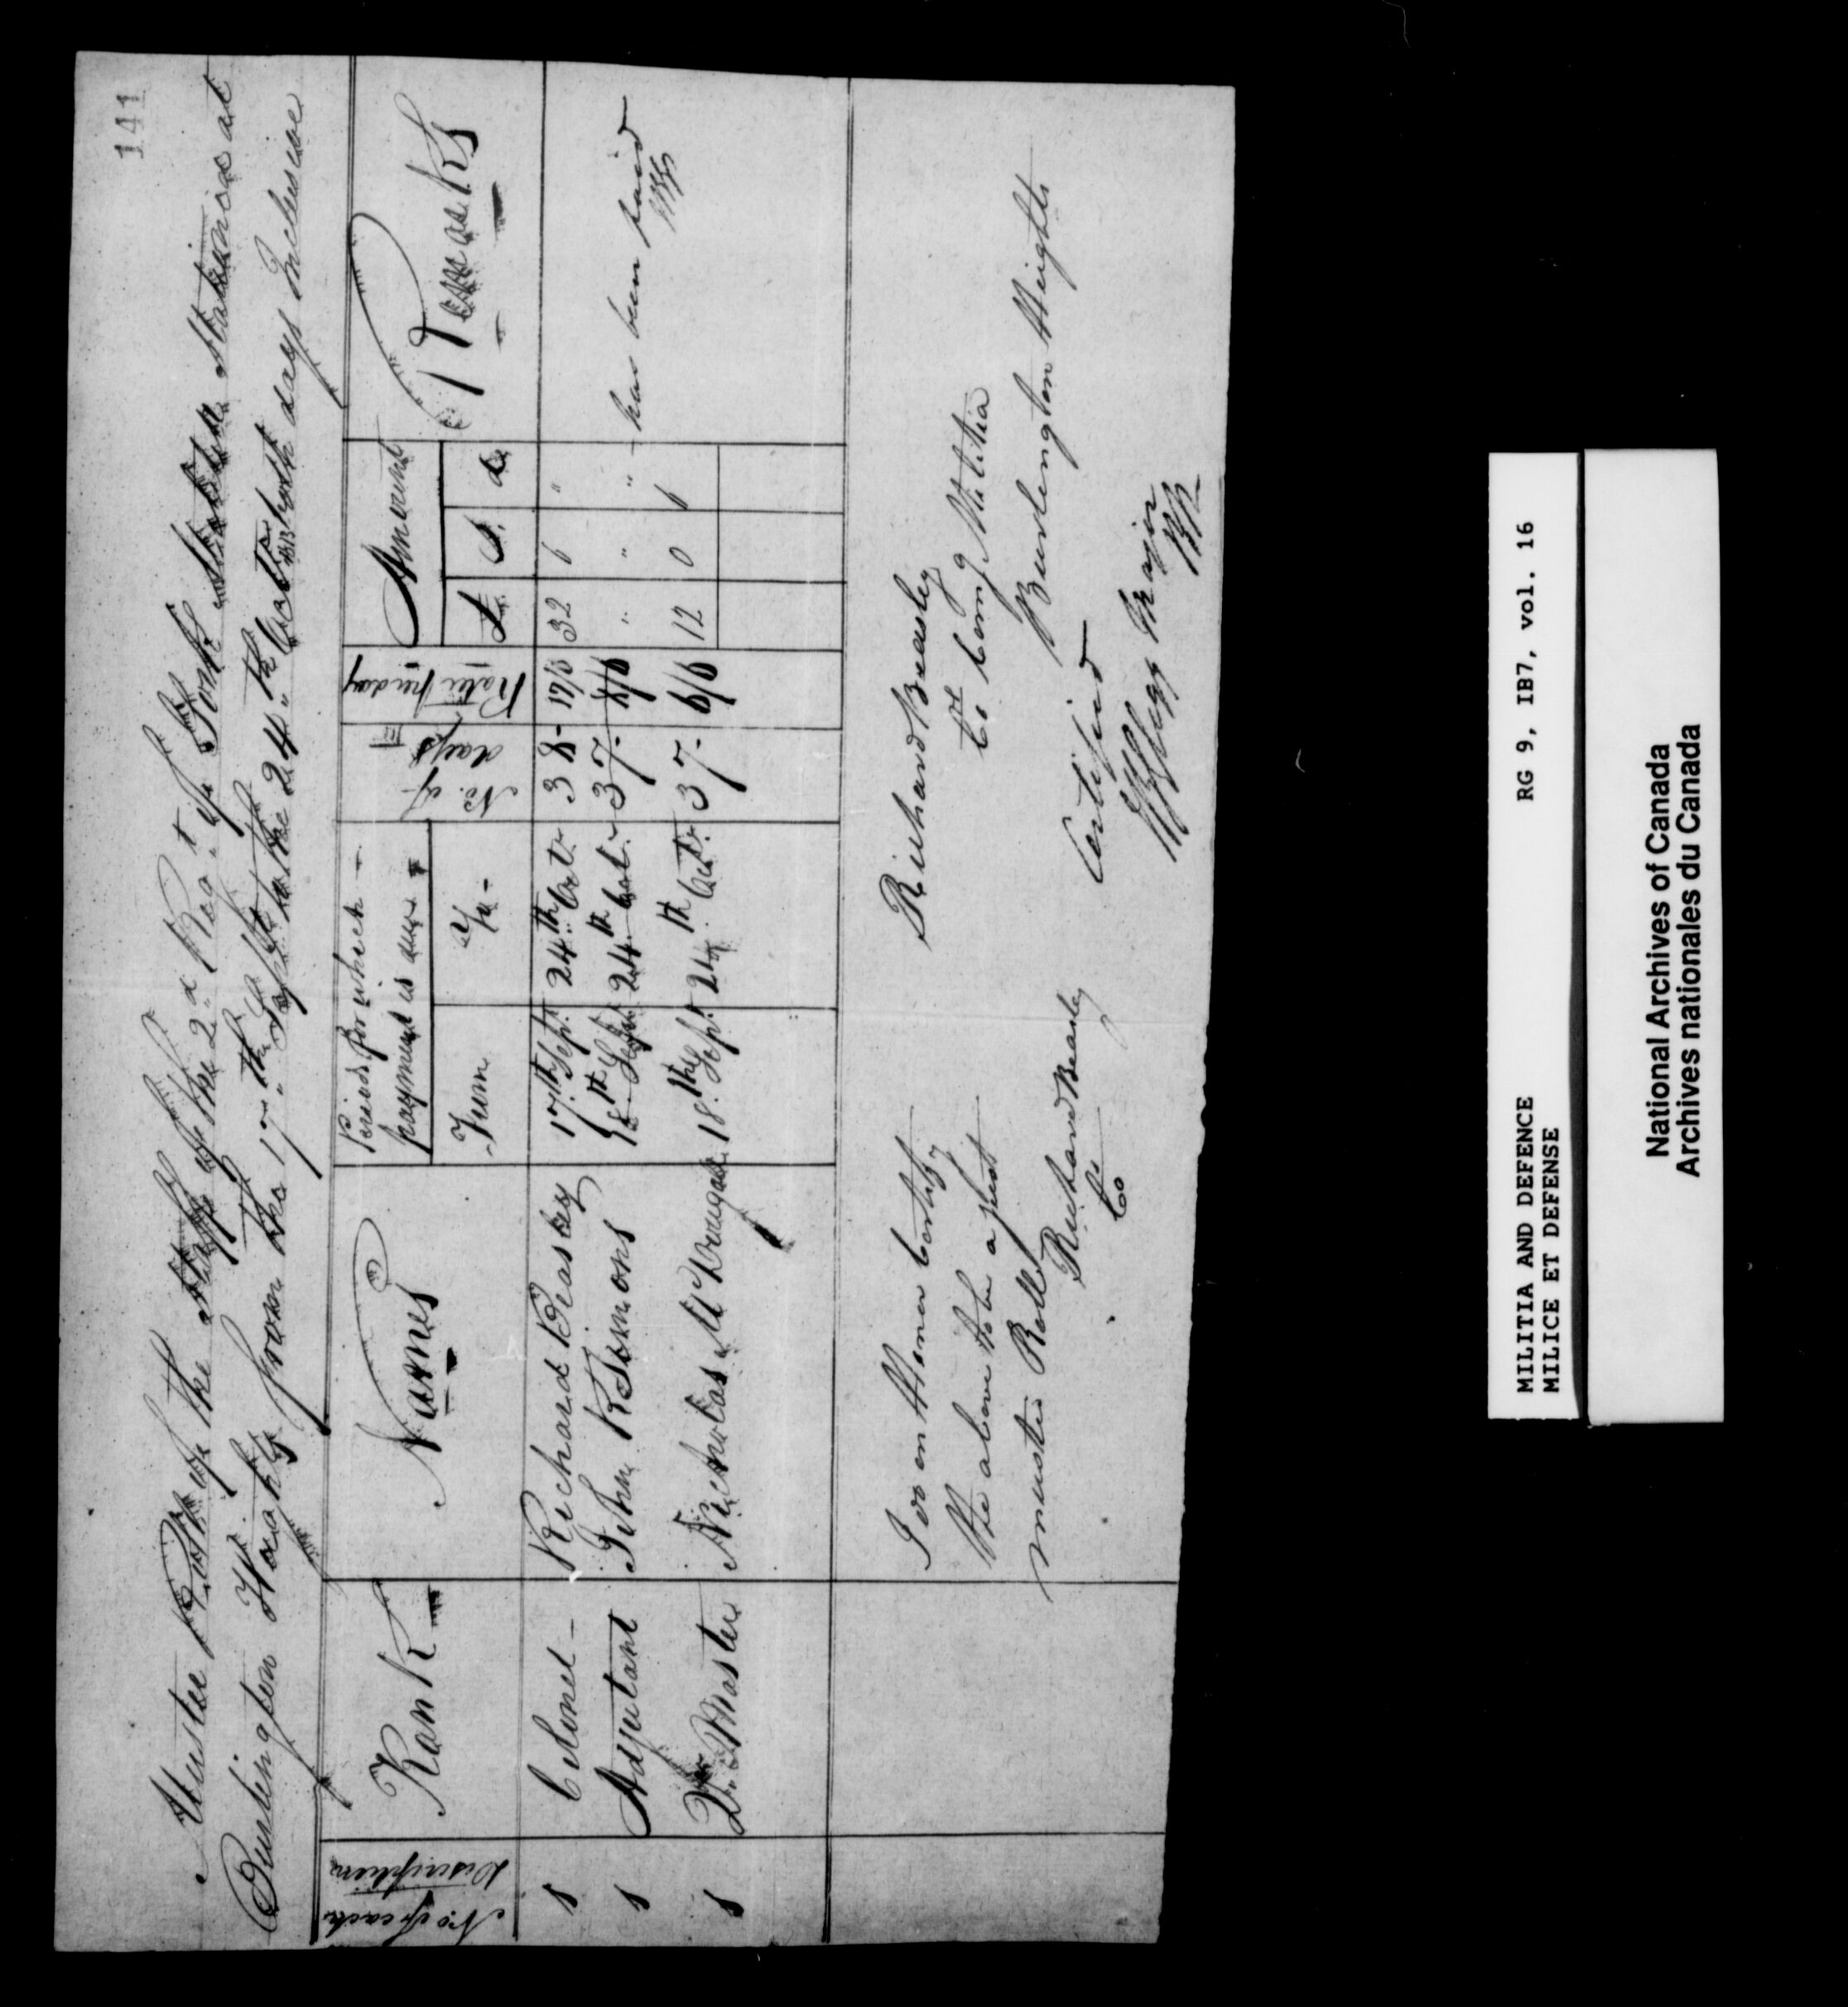 141
Muster Roll of the Staff of the 2.d Reg.t of York Militia Stationed at
Burlington Heights from the 17.th Sept. to the 24.th Octr. both days Inclusive
No. of each Discription
Rank
Names
Period for which payment is due
From
To
No. of days
Rate per day
Amount
£ S. d
Remarks
1 Colonel - Richard Beasley 17.th Sept. 24.th Oct. 38 - 17/6 32 6 "
1 Adjutant John K Simons 18.th Sept. 24.th Oct. 37 - " " " has been paid
1 Qr. Master Nicholas McDougall 18.th Sept. 24.th Oct. 37 - 6/6 12 0 6
I do on Honor Certify
the above to be a just
muster Rolle
Richard Beasley
Co
Richard Beasley
Col Comg Militia
Burlington Heights
Certified
Major
MILITIA AND DEFENCE RG 9, IB7, vol. 16
MILICE ET DEFENSE
National Archives of Canada
Archives nationales du Canada